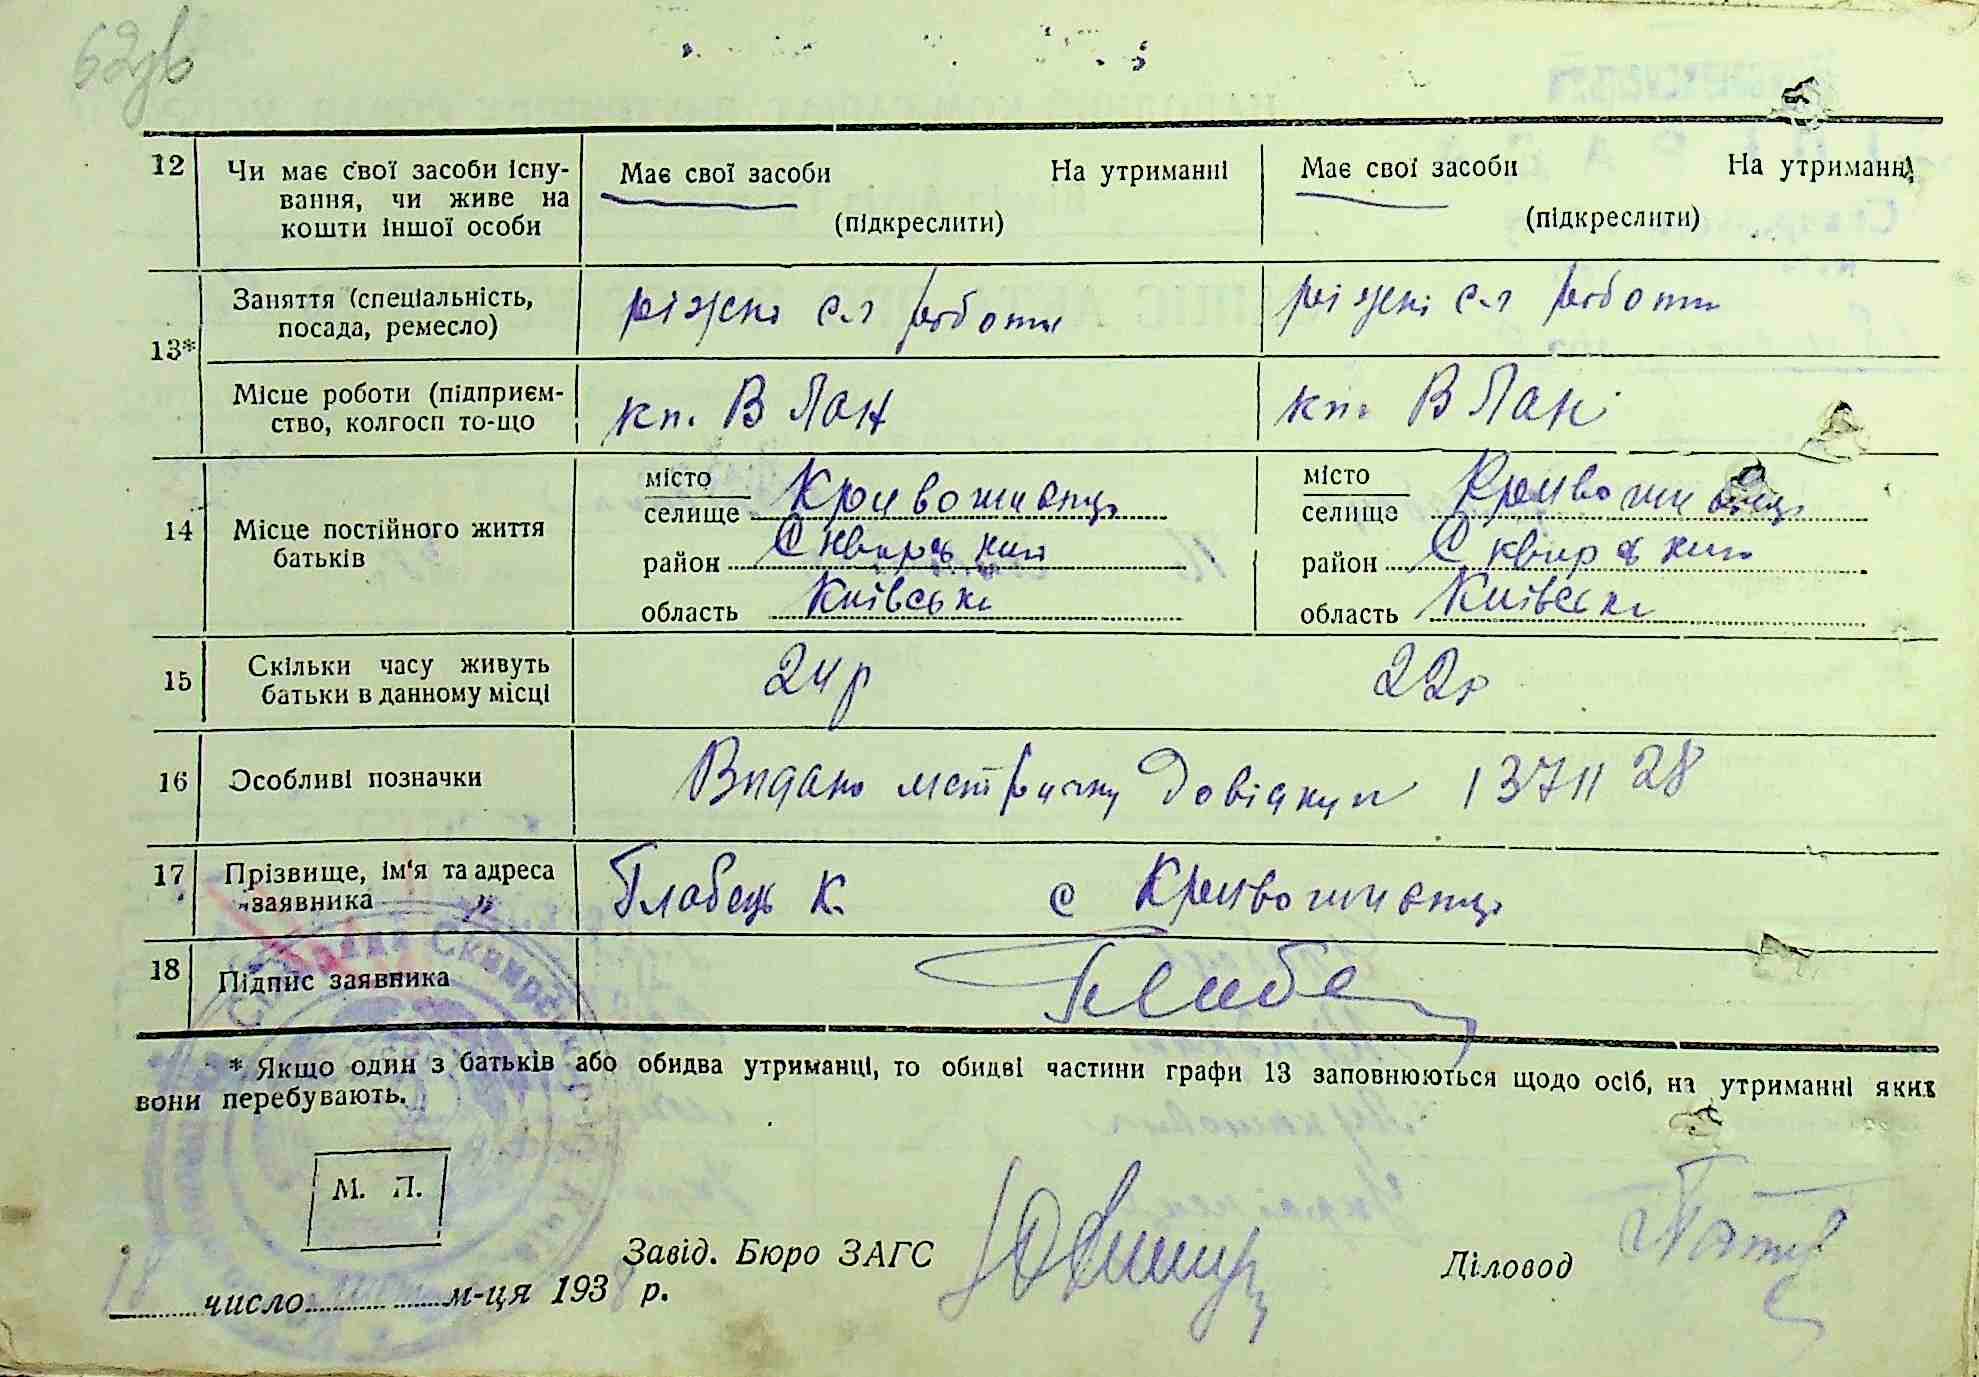 62зв
12 Чи має свої засоби існу-
вання, чи живе на
кошти іншої особи
Має свої засоби На утриманні
(підкреслити)
Має свої засоби На утриманні
(підкреслити)
13*
Заняття (спеціальність,
посада, ремесло)
ріжні с.г роботи
ріжні с.г роботи
Місце роботи (підприєм-
ство, колгосп то-що
кп. В Лан
кп. В Лан
14 Місце постійного життя
батьків
місто
селище Кривошиєнці
район Сквирський
область Київська
місто
селище Кривошиєнці
район Сквирський
область Київська
15 Скільки часу живуть
батьки в данному місці
24р
22р
16 Особливі позначки
Видано метричну довідку 28
17 Прізвище, ім'я та адреса
заявника
К. с Кривошиєнці
18 Підпис заявника
* Якщо один з батьків або обидва утриманці, то обидві частини графи 13 заповнюються щодо осіб, на утриманні яких
вони перебувають.
М. П.
Завід. Бюро ЗАГС
Діловод
18 число м-ця 1938 р.